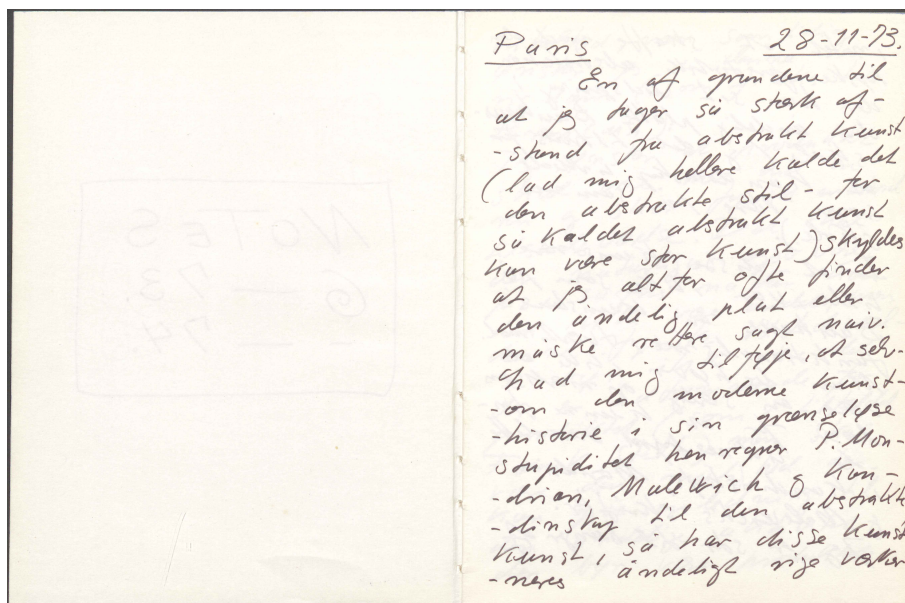 NOTES
73.
74.
Paris 28-11-73.
En af grundene til
at jeg tager så stærk af-
-stand fra abstrakt kunst
(lad mig hellere kalde det
den abstrakte stil - for
så kaldet abstrakt kunst
kan være stor kunst) skyldes
at jeg alt for ofte finder
den åndelig plat eller
måske rettere sagt naiv.
Lad mig tilføje, at selv-
-om den moderne kunst-
-historie i sin grænseløse
stupiditet henregner P. Mon-
-drian, Malewich og Kan-
-dinsky til den abstrakte
kunst, så har disse kunst
-neres åndeligt rige værker